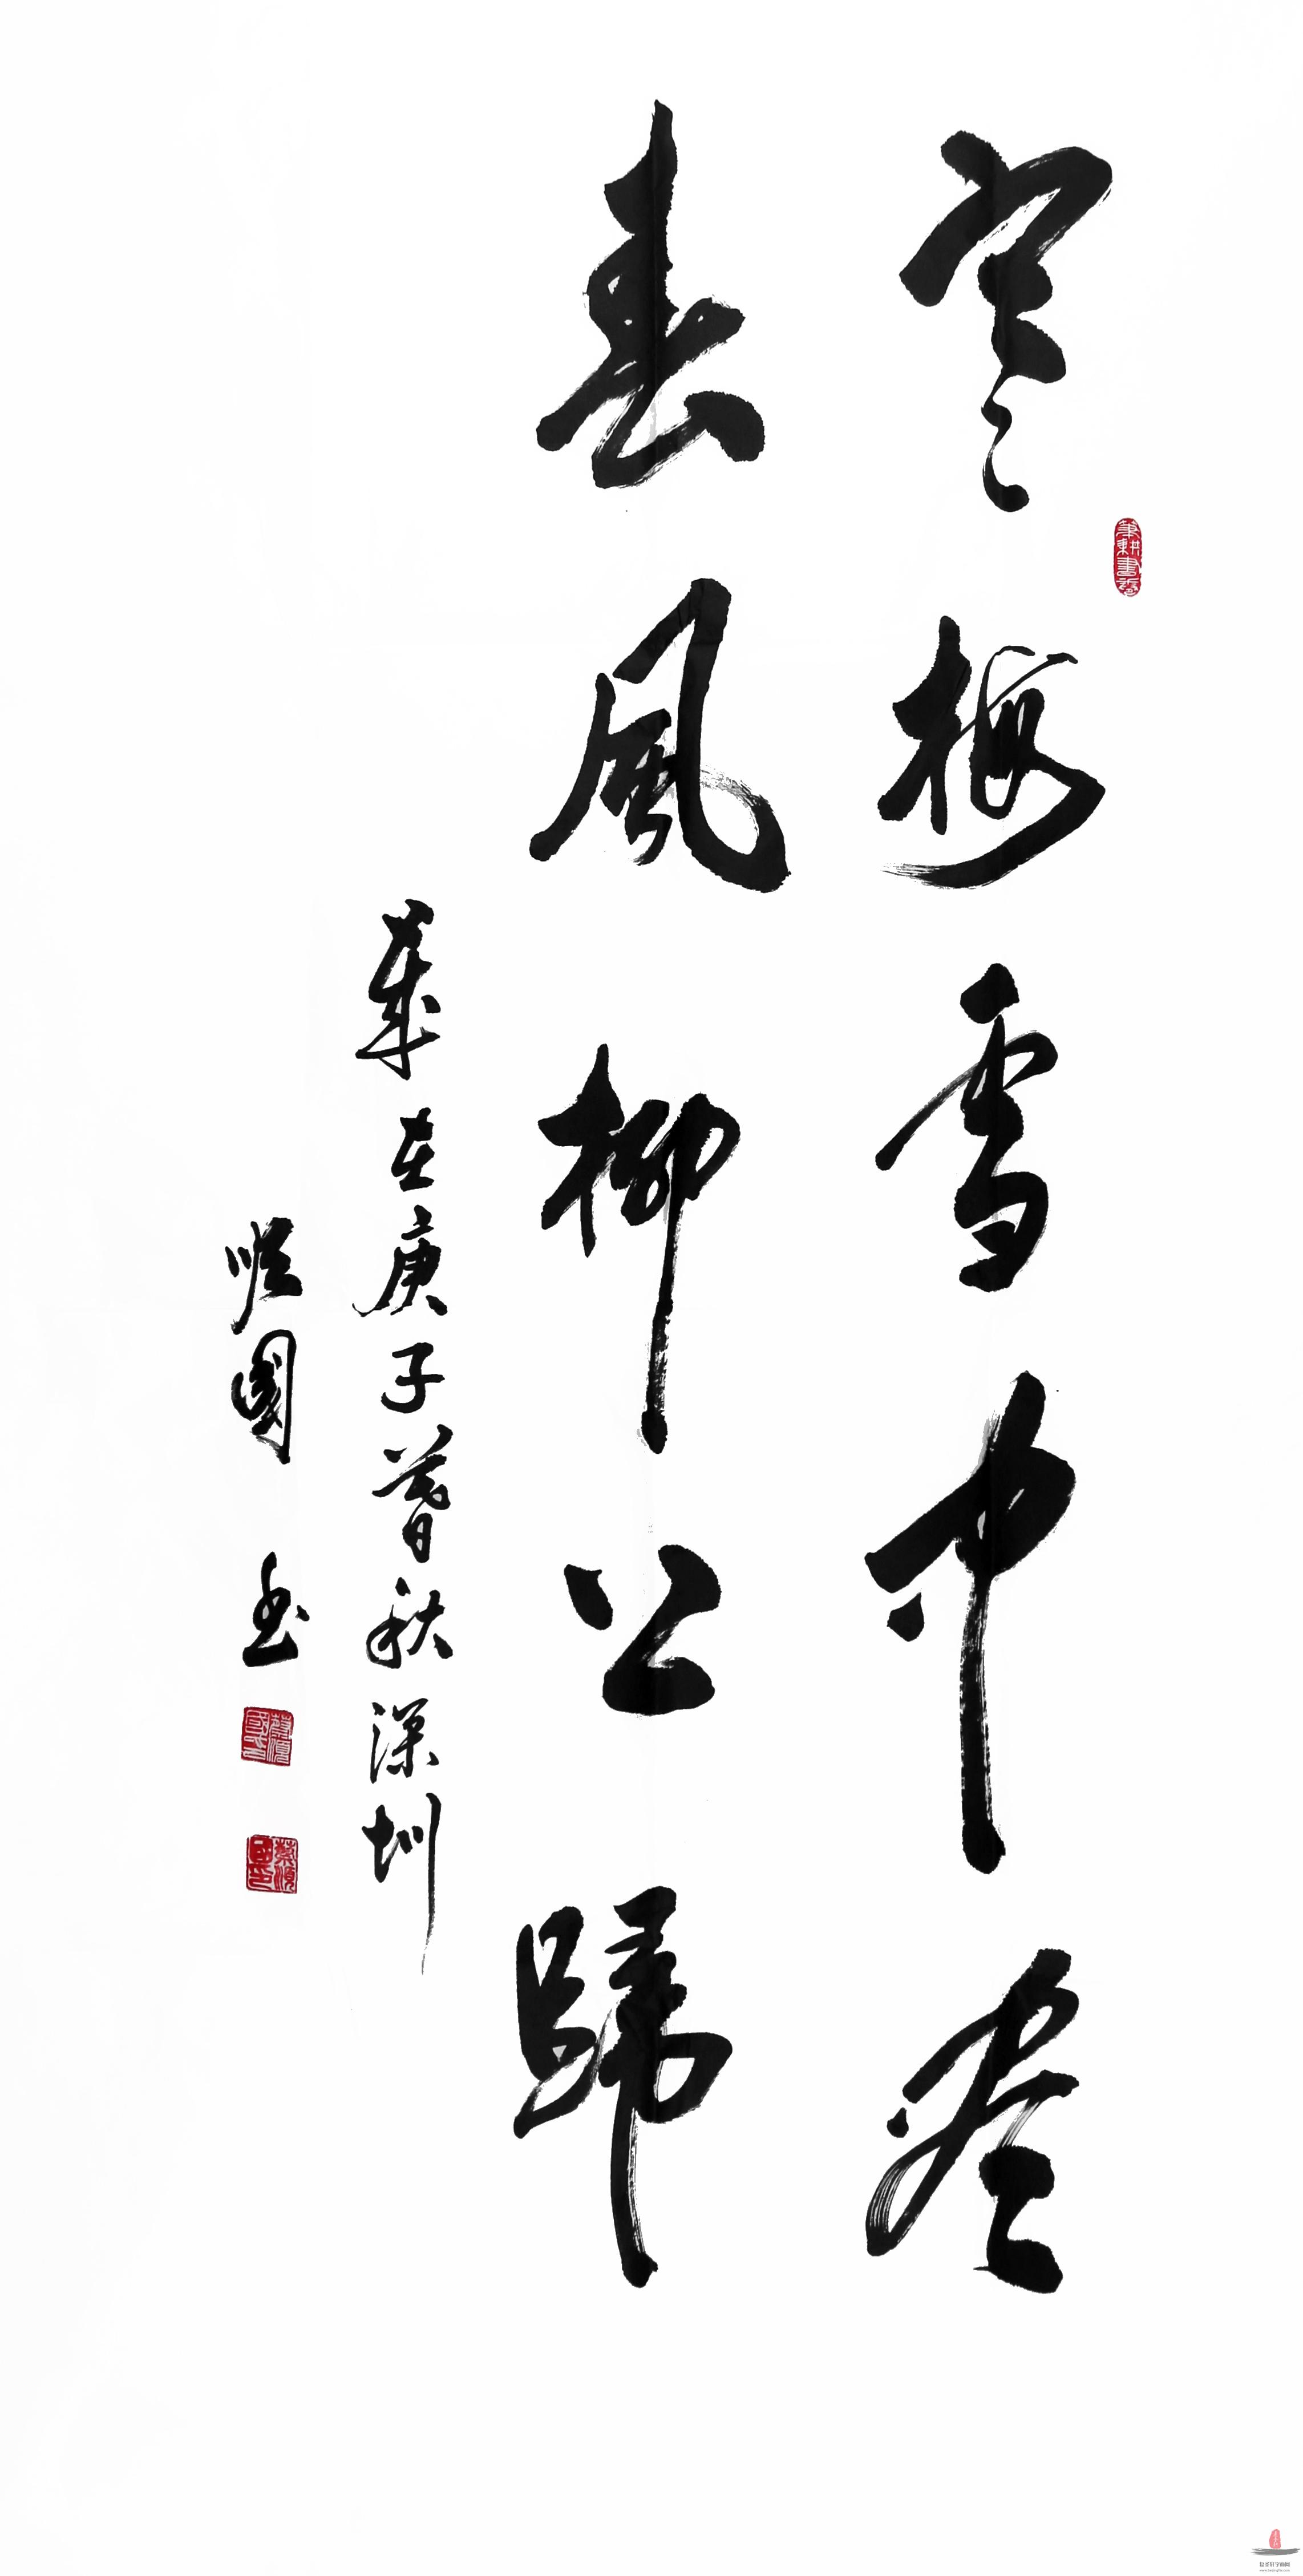 寒梅雪中尽
春風柳上歸
歲在庚子暮秋深圳
順國書